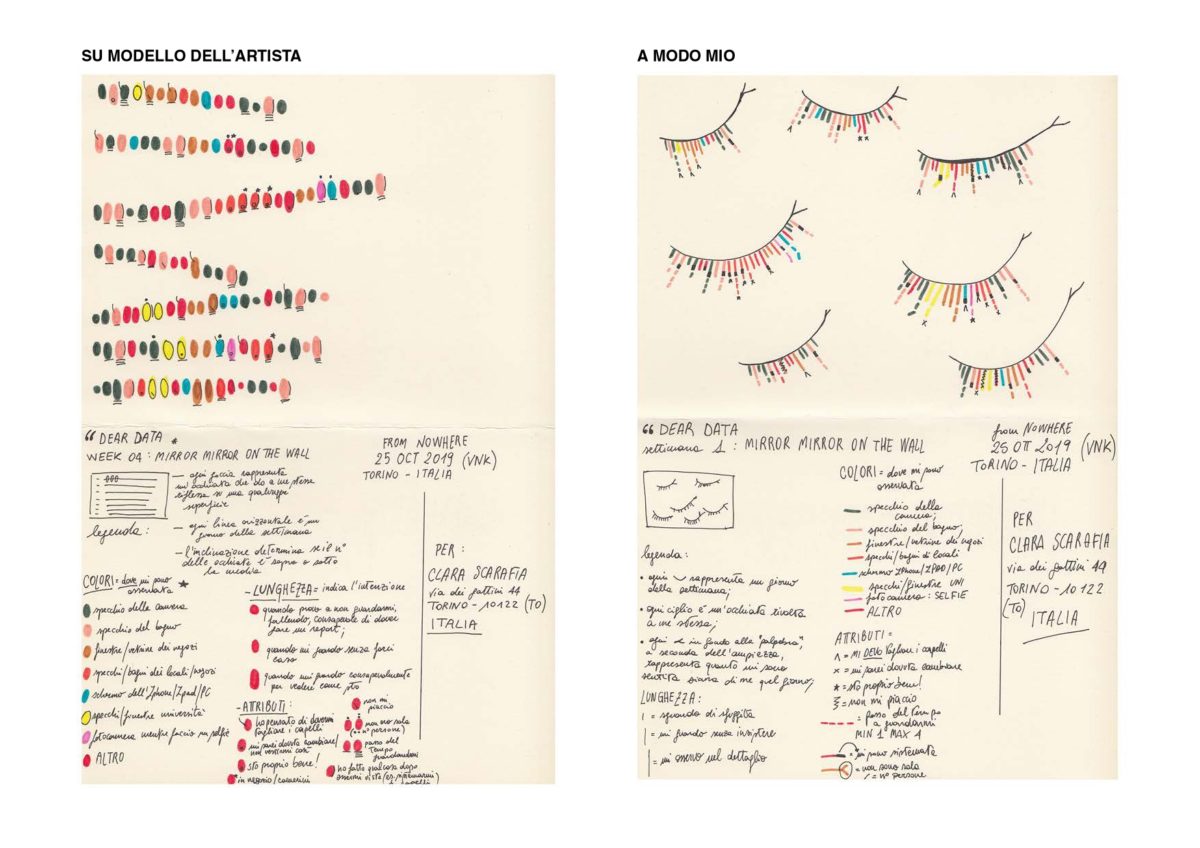 SU MODELLO DELL'ARTISTA
“ DEAR DATA
WEEK 04 : MIRROR MIRROR ON THE WALL
FROM NOWHERE
25 OCT 2019 (VNK)
TORINO - ITALIA
— ogni faccia rappresenta
un'occhiata che do a me stessa
riflessa in una qualunque
superficie
legenda :
— ogni linea orizzontale è un
giorno della settimana
— l'inclinazione determina se il n°
delle occhiate è sopra o sotto
la media
PER :
CLARA SCARAFIA
via dei fattini 44
TORINO - 10122 (TO)
ITALIA
COLORI = dove mi sono
osservata
specchio della camera
specchio del bagno
finestre/vetrine dei negozi
specchi/bagni dei locali/negozi
schermo dell'Iphone/Ipad/PC
specchi/finestre università
fotocamera mentre faccio un selfie
ALTRO
- LUNGHEZZA = indica l'intenzione
quando provo a non guardarmi,
fallendo, consapevole di dover
fare un report;
quando mi guardo senza farci
caso
quando mi guardo consapevolmente
per vedere come sto
- ATTRIBUTI :
ho pensato di dovermi
tagliare i capelli
mi sarei dovuta cambiare/
sto proprio bene!
in negozio/camerini
non mi
piaccio
non ero sola
(n° persone)
passo del
tempo
guardandomi
ho fatto qualcosa dopo
essermi vista (es. sistemarmi
A MODO MIO
“ DEAR DATA
settimana 1 : MIRROR MIRROR ON THE WALL
from NOWHERE
25 OTT 2019 (VNK)
TORINO - ITALIA
COLORI = dove mi sono
osservata
specchio della
camera;
specchio del bagno;
finestre/vetrine dei negozi
specchi/bagni di locali
schermo IPhone/IPAD/PC
specchi/finestre UNI
fotocamera : SELFIE
ALTRO
PER
CLARA SCARAFIA
via dei fattini 49
TORINO - 10122
(TO)
ITALIA
legenda :
• ogni rappresenta un giorno
della settimana;
• ogni ciglio è un'occhiata rivolta
a me stessa;
• ogni < in fondo alla "palpebra",
a seconda dell'ampiezza,
rappresenta quanto mi sono
sentita sicura di me quel giorno;
LUNGHEZZA :
= sguardo di sfuggita
= mi guardo senza insistere
= mi osservo nel dettaglio
ATTRIBUTI =
Λ = MI DEVO tagliare i capelli
x = mi sarei dovuta cambiare
* = sto proprio bene!
= non mi piaccio
= passo del tempo
a guardarmi
MIN 1 MAX 4
= mi sono sistemata
= non sono sola
/= n° persone